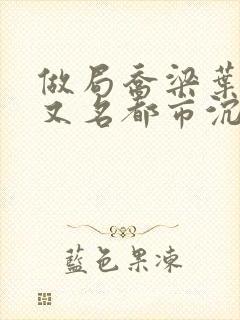 做局喬梁葉
又名都市沉
藍色果凍